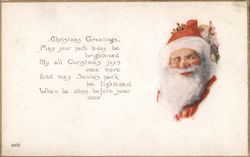 Christmas Greetings.
May your path to-day be
brightened
By all Christmas joys
once more
And may Santa's pack
be lightened
When he stops before your
door